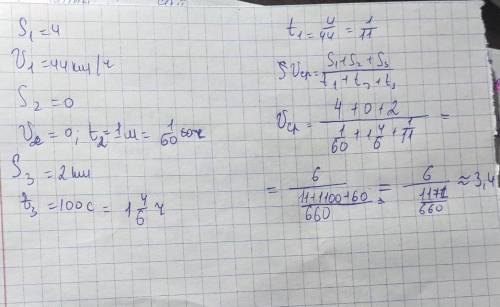 S₁ = 4
V₁ = 44 км/ч
S₂ = 0
V₂ = 0; t₂ = 1 м = 1/60
S₃ = 2 км
t₃ = 100 с = 1 4/6 ч
t₁ = 4/44 = 1/11
Vср = (S₁ + S₂ + S₃)/(t₁ + t₂ + t₃)
Vср = (4 + 0 + 2)/(1/60 + 1 4/6 + 1/11) =
= 6/((11 + 1100 + 60)/660) = 6/(1171/660) ≈ 3,4